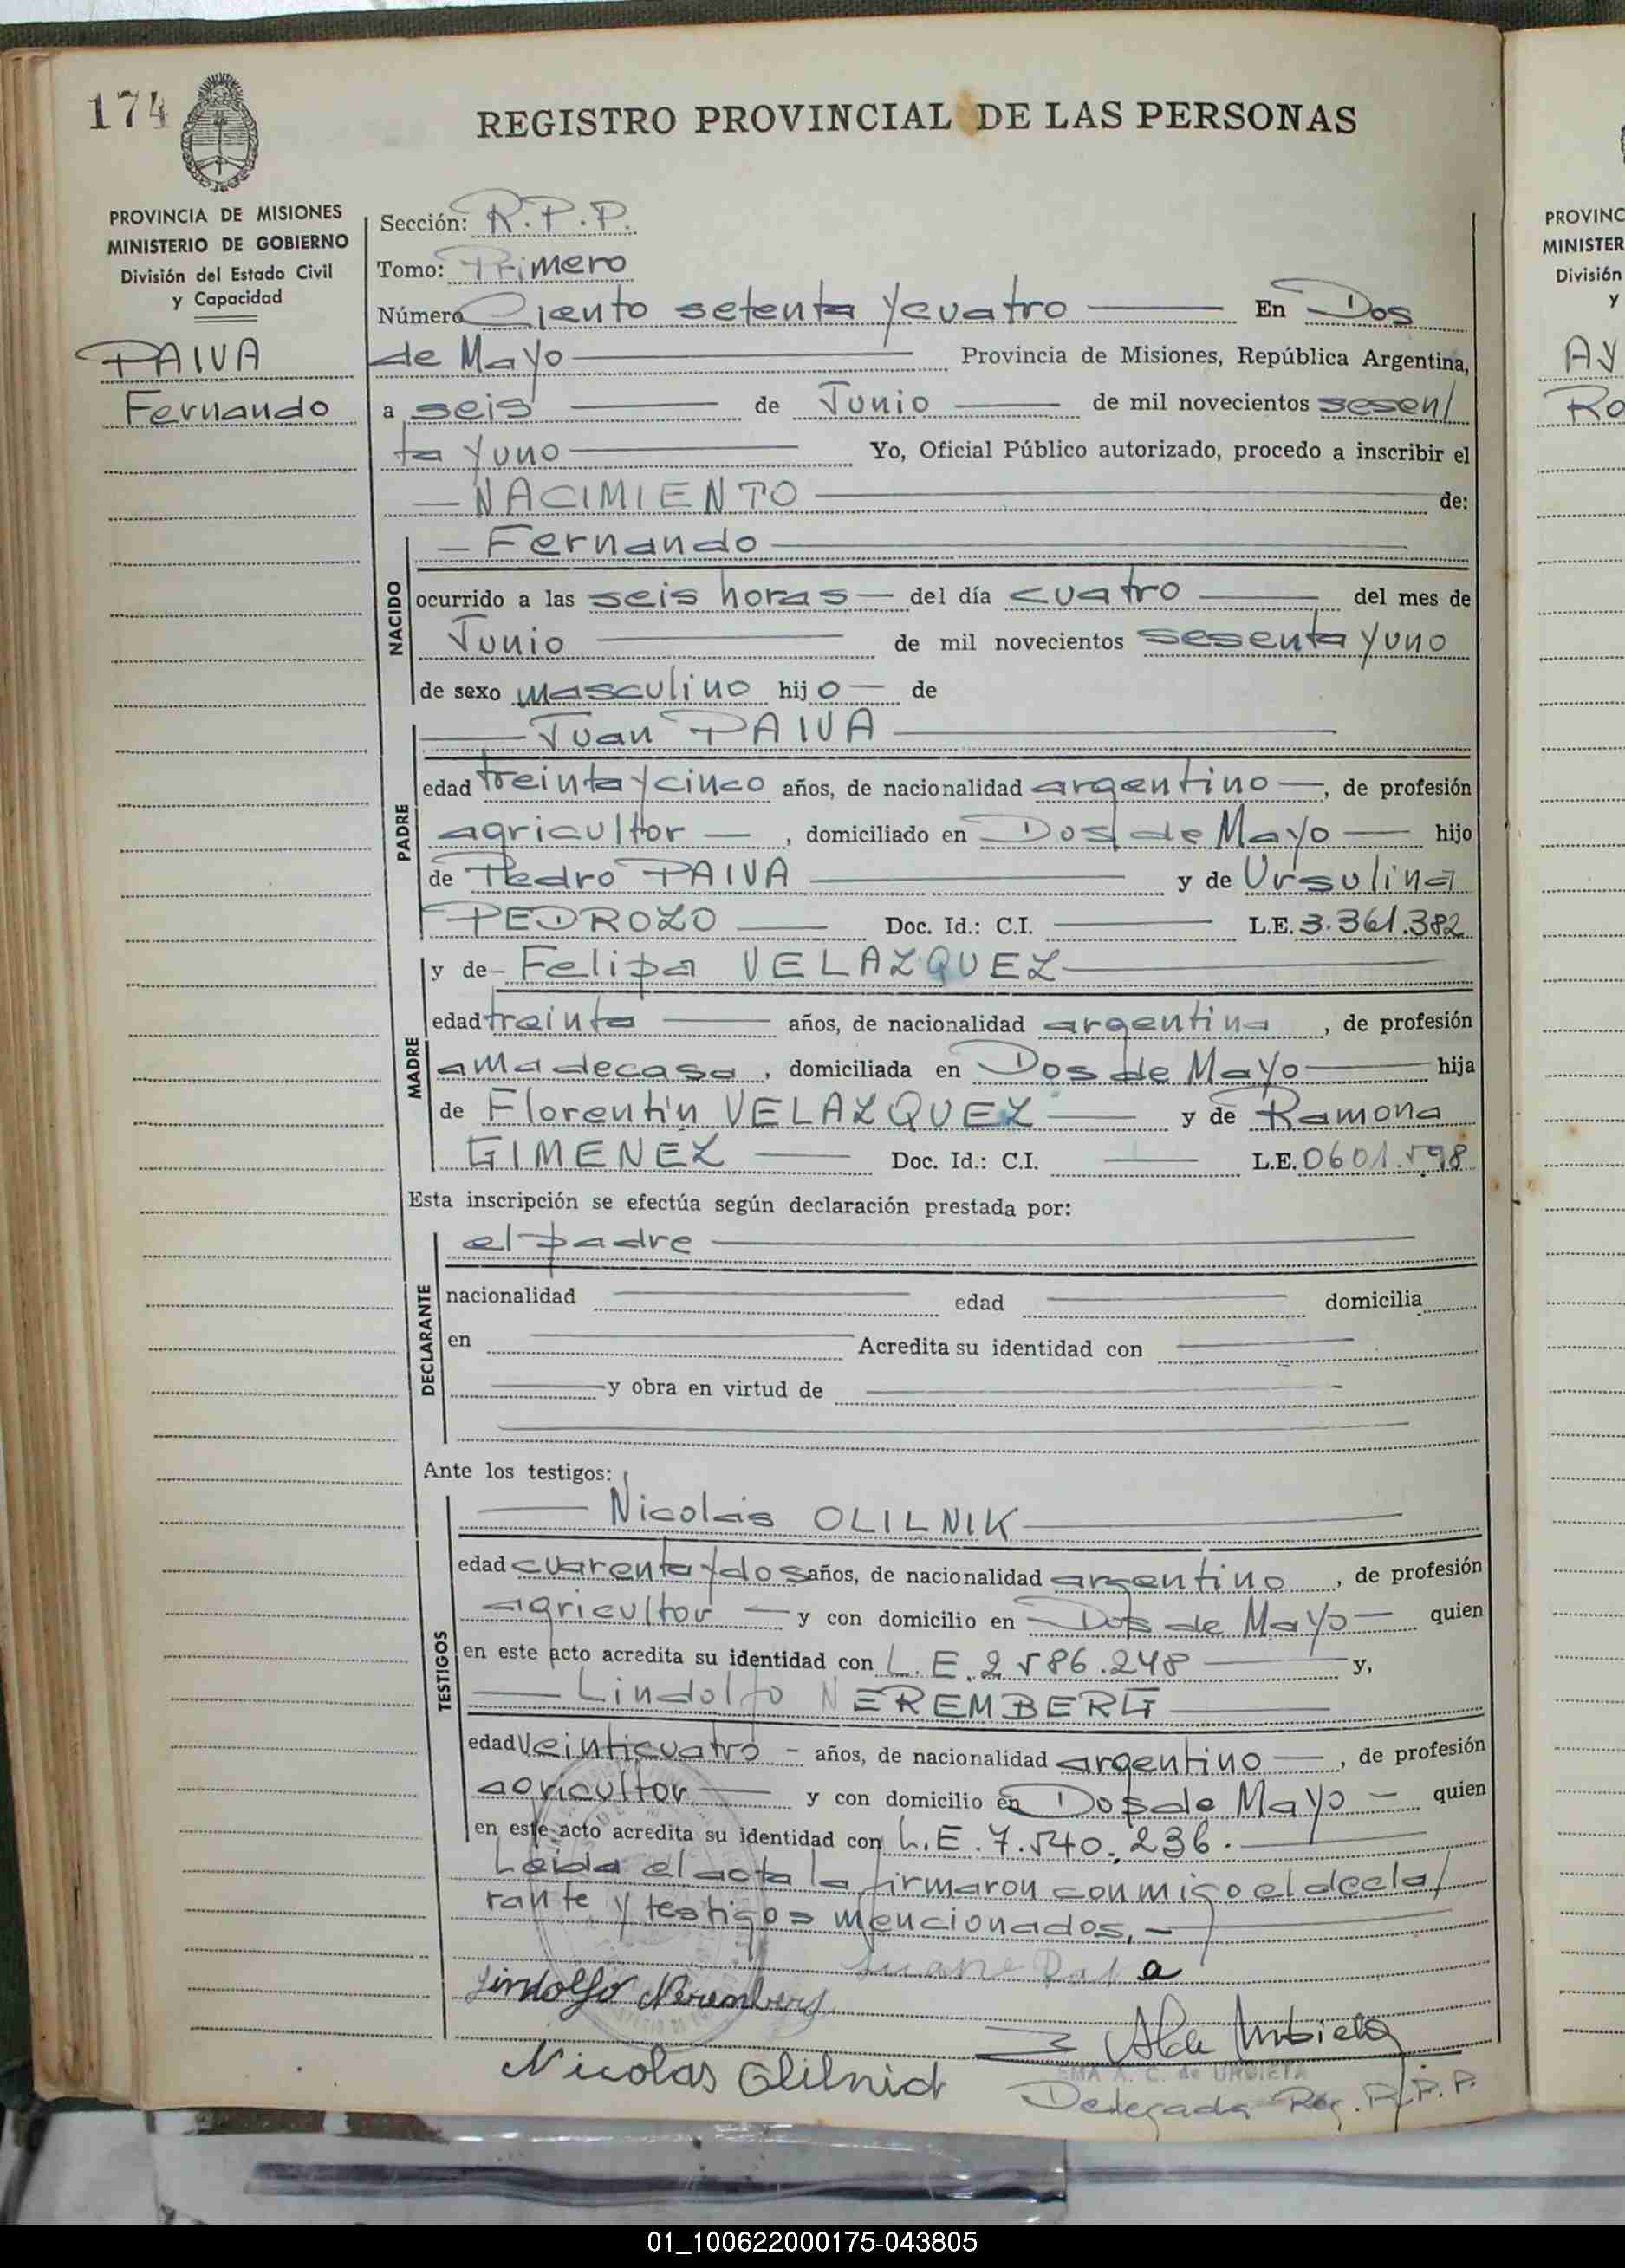 174
REGISTRO PROVINCIAL DE LAS PERSONAS
PROVINCIA DE MISIONES
MINISTERIO DE GOBIERNO
División del Estado Civil
y Capacidad
PAIVA
Fernando
Sección: R.P.P.
Tomo: Primero
Número Ciento setenta y cuatro En Dos
de Mayo Provincia de Misiones, República Argentina,
a seis de Junio de mil novecientos sesen/
ta y uno Yo, Oficial Público autorizado, procedo a inscribir el
NACIMIENTO de:
NACIDO
Fernando
ocurrido a las seis horas del día cuatro del mes de
Junio de mil novecientos sesenta y uno
de sexo masculino hijo de
PADRE
Juan PAIVA
edad treinta y cinco años, de nacionalidad argentino, de profesión
agricultor, domiciliado en Dos de Mayo hijo
de Pedro PAIVA y de Ursulina
PEDROZO Doc. Id.: C.I. L.E. 3.361.382
MADRE
y de Felipa VELAZQUEZ
edad treinta años, de nacionalidad argentina, de profesión
ama de casa, domiciliada en Dos de Mayo hija
de Florentín VELAZQUEZ y de Ramona
GIMENEZ Doc. Id.: C.I. L.E. 0601.598
Esta inscripción se efectúa según declaración prestada por:
DECLARANTE
el padre
nacionalidad edad domicilia
en Acredita su identidad con
y obra en virtud de
Ante los testigos:
TESTIGOS
Nicolás OLILNIK
edad cuarenta y dos años, de nacionalidad argentino, de profesión
agricultor y con domicilio en Dos de Mayo quien
en este acto acredita su identidad con L.E. 2586.248 y,
Lindolfo NEREMBERG
edad veinticuatro - años, de nacionalidad argentino, de profesión
agricultor y con domicilio en Dos de Mayo quien
en este acto acredita su identidad con L.E. 7.540.236.
Leida el acta la firmaron conmigo el decla/
rante y testigos mencionados.
Lindolfo Neremberg
Nicolas Olilnik
EMA A. C. de URBIETA
Delegada Reg. R.P.P.
PROVINC
MINISTER
División
y
AY
Ro
01_100622000175-043805